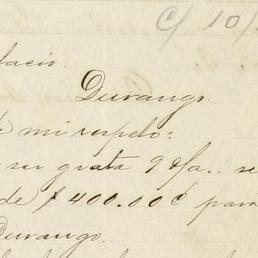 c/ 10/
lacio.
Durango.
mi respeto:
su grata 9 cfa., se
de $400.00 ¢ para
Durango.